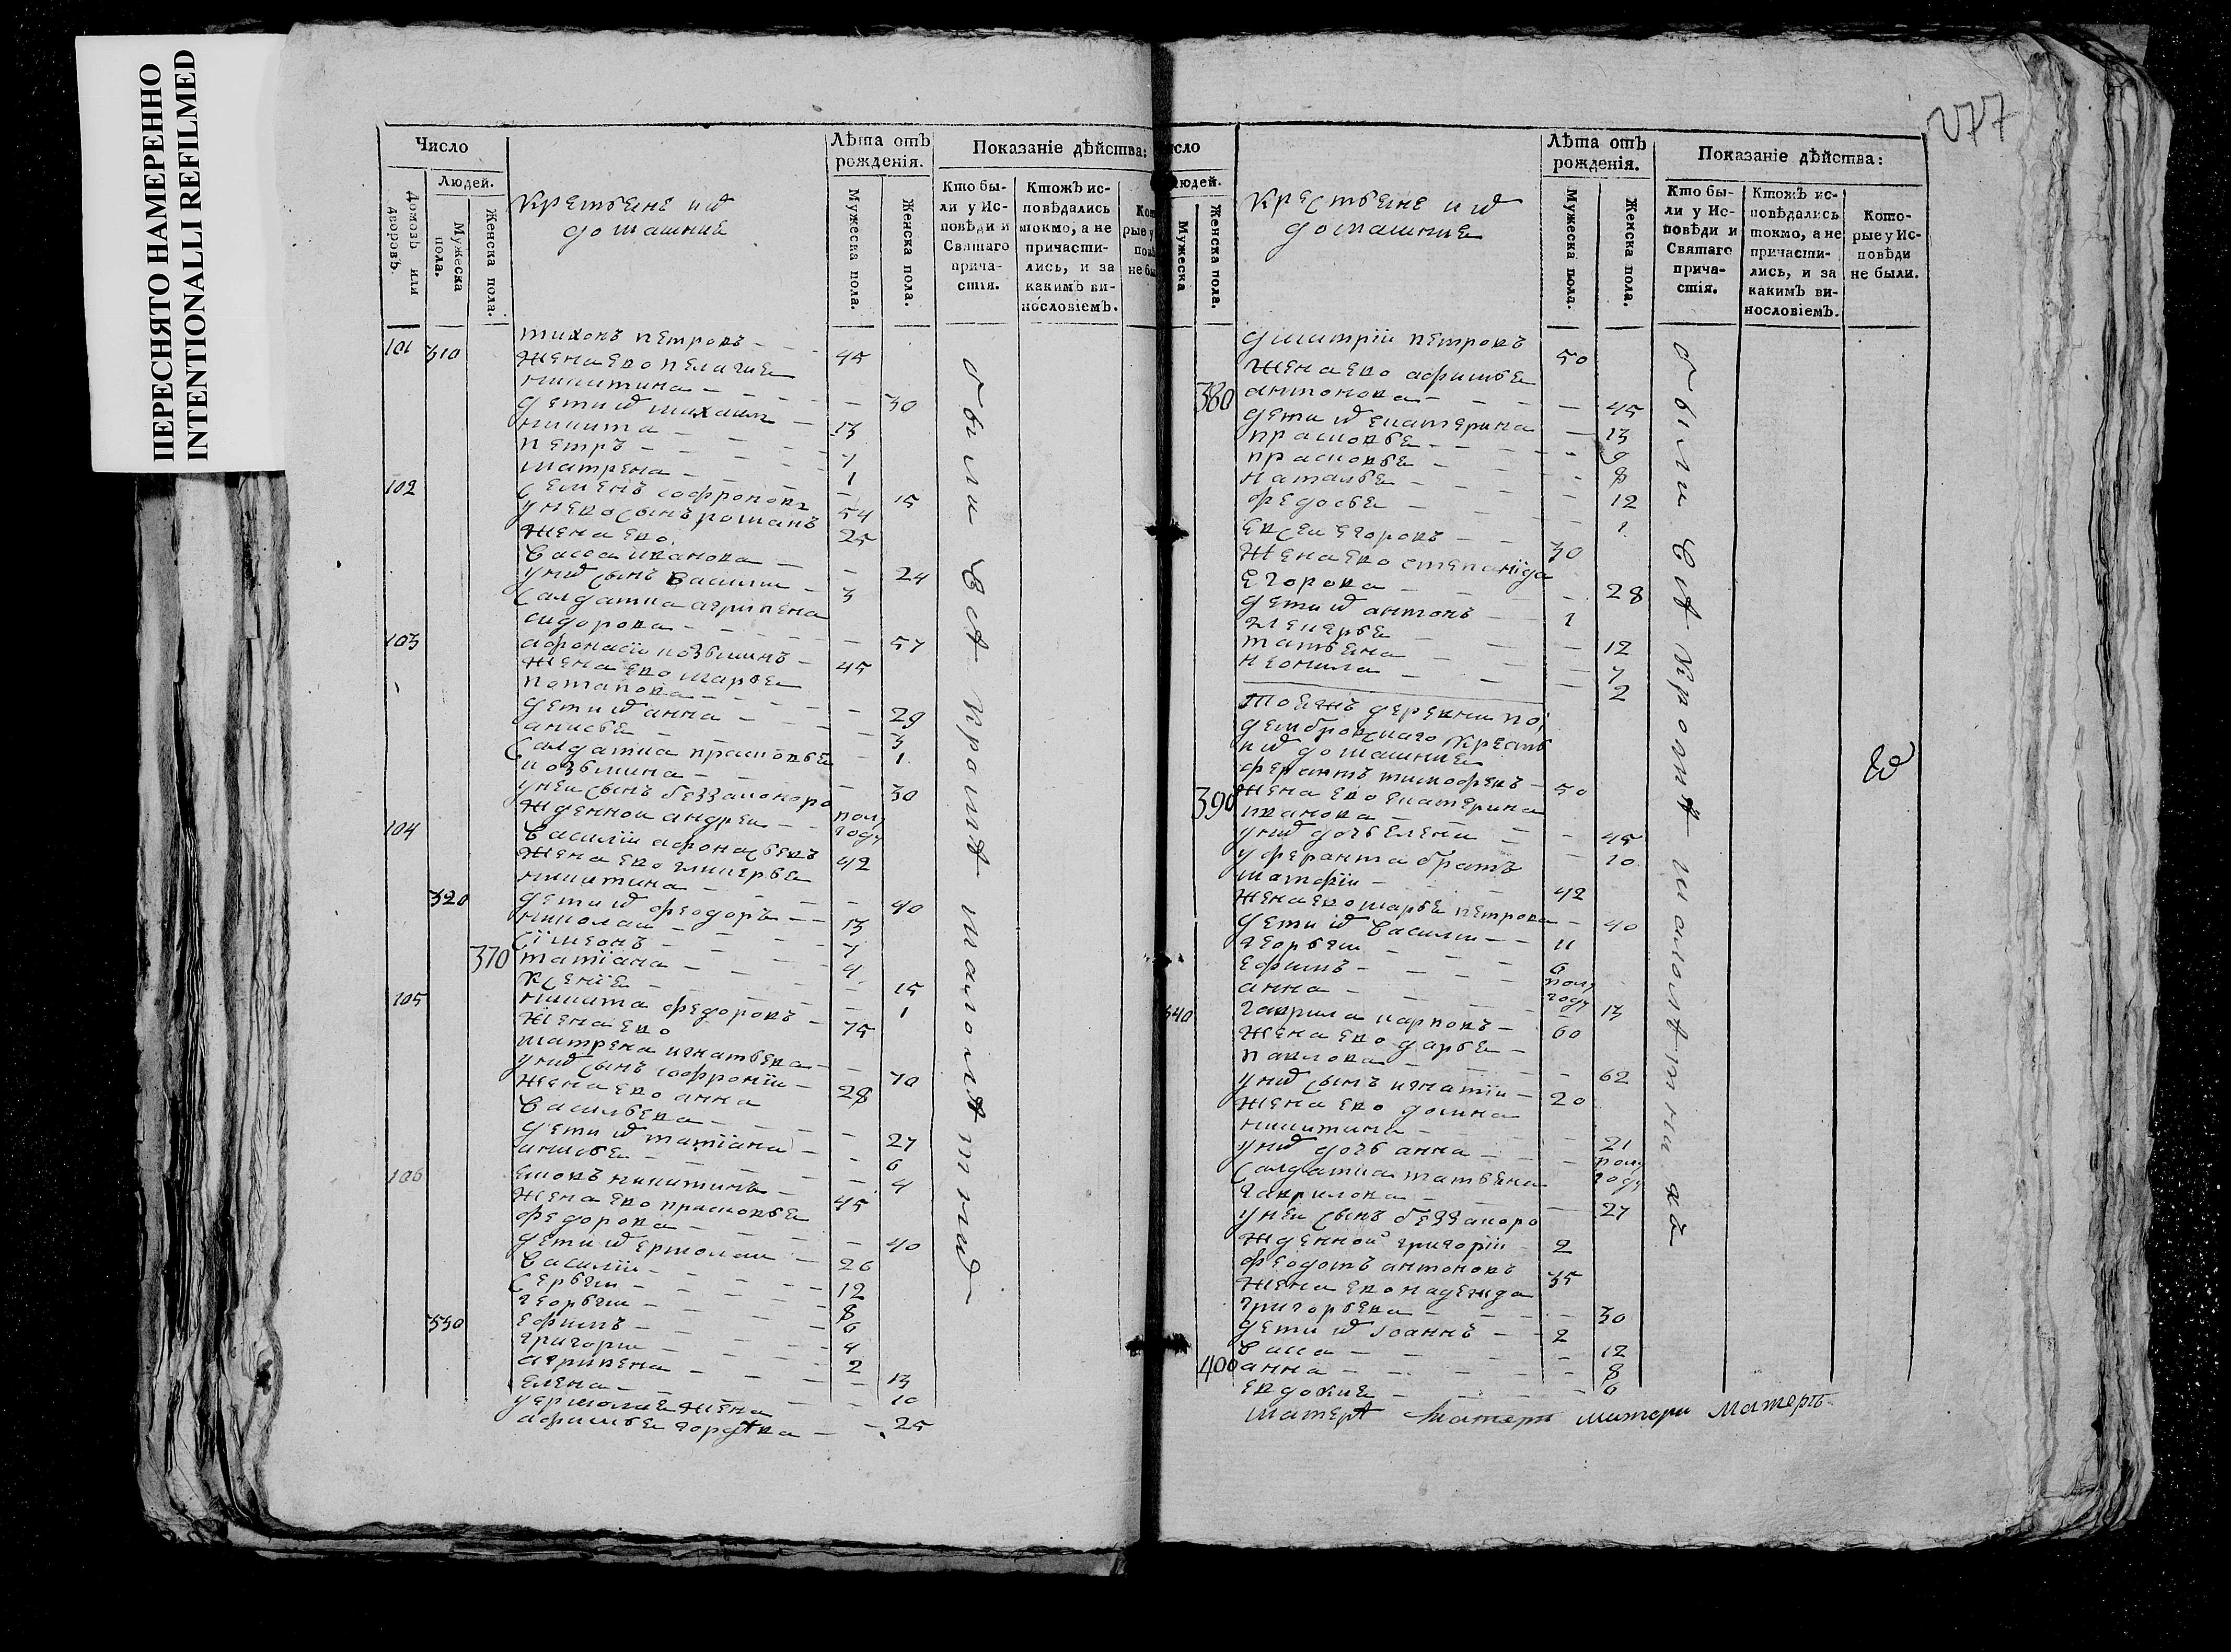 ПЕРЕСНЯТО НАМЕРЕННО
INTENTIONALLI REFILMED
Число
Людей.
Домовъ или дворовъ.
Мужеска пола.
Женска пола.
крестьяне и ихъ
домашние
Лѣта отъ рожденія.
Мужеска пола.
Женска пола.
Показаніе дѣйства:
Кто были у Исповѣди и Святаго причастія.
Ктожъ исповѣдались токмо, а не причастились, и за какимъ винословіемъ.
тихонъ петровъ
101 310 45
жена ево пелагиея
никитина 30
дети их михаилъ 13
никита 7
петръ 1
матрена 15
102 семенъ софроновъ 54
у нево сынъ романъ 25
жена ево
васса иванова 24
у них сынъ василии 3
салдатка агрипена
сидорова 57
103 афонасіи козьминъ 45
жена ево марѳея
потапова 29
дети их анна 3
анисья 1
салдатка прасковья
козьмина 30
у неи сынъ беззаконоро
жденнои андреи полу году
104 василіи афонасьевъ 42
жена ево гликерья
никитина 40
320 дети их феодоръ 13
николаи 7
сімеонъ 4
370 татіана 15
ксения 1
105 никита федоровъ 75
жена ево
матрена игнатьева 70
у них сынъ софроніи 28
жена ево анна
васильева 27
дети их татіана 6
анисья 4
106 яковъ никитинъ 45
жена ево прасковья
федорова 40
дети их ермолаи 26
василіи 12
сергѣи 8
георгіи 6
330 ефимъ 4
григории 2
агрипена 13
елена 10
у ермолая жена
афимья гордѣева 25
были всѣ кромѣ малолѣтнихъ
277
Женска пола.
крестьяне и ихъ
домашние
Лѣта отъ рожденія.
Мужеска пола.
Женска пола.
Показаніе дѣйства:
Кто были у Исповѣди и Святаго причастія.
Ктожъ исповѣдались токмо, а не причастились, и за какимъ винословіемъ.
Которые у Исповѣди не были.
дмитріи петровъ 50
жена ево афимья
380 антонова 45
дети их екатерина 13
прасковья 9
прасковья 8
наталья 12
федосья 1
евсеи егоровъ 30
жена ево степанида
егорова 28
дети их антонъ 1
гликерья 12
татьяна 7
неонила 2
тоежъ деревни
и их домашние
ферантъ тимофеевъ 50
390 жена ево екатерина
иванова 45
у них дочь елена 10
у феранта братъ
матфіи 42
жена ево марья петрова 40
дети их василіи 11
георгіи 6
ефимъ полу году
анна 13
340 гаврила карповъ 60
жена ево дарья
павлова 62
у них сынъ игнатіи 20
жена ево домна
никитина 21
у них дочь анна полу году
салдатка татьяна
гаврилова 27
у неи сынъ беззакоро
жденнои григоріи 2
феодотъ антоновъ 35
жена ево надежда
григорьева 30
дети их іоаннъ 2
васса 12
400 анна 8
евдокия 6
матерѣ матери матери матерь
были всѣ кромѣ малолѣтнихъ